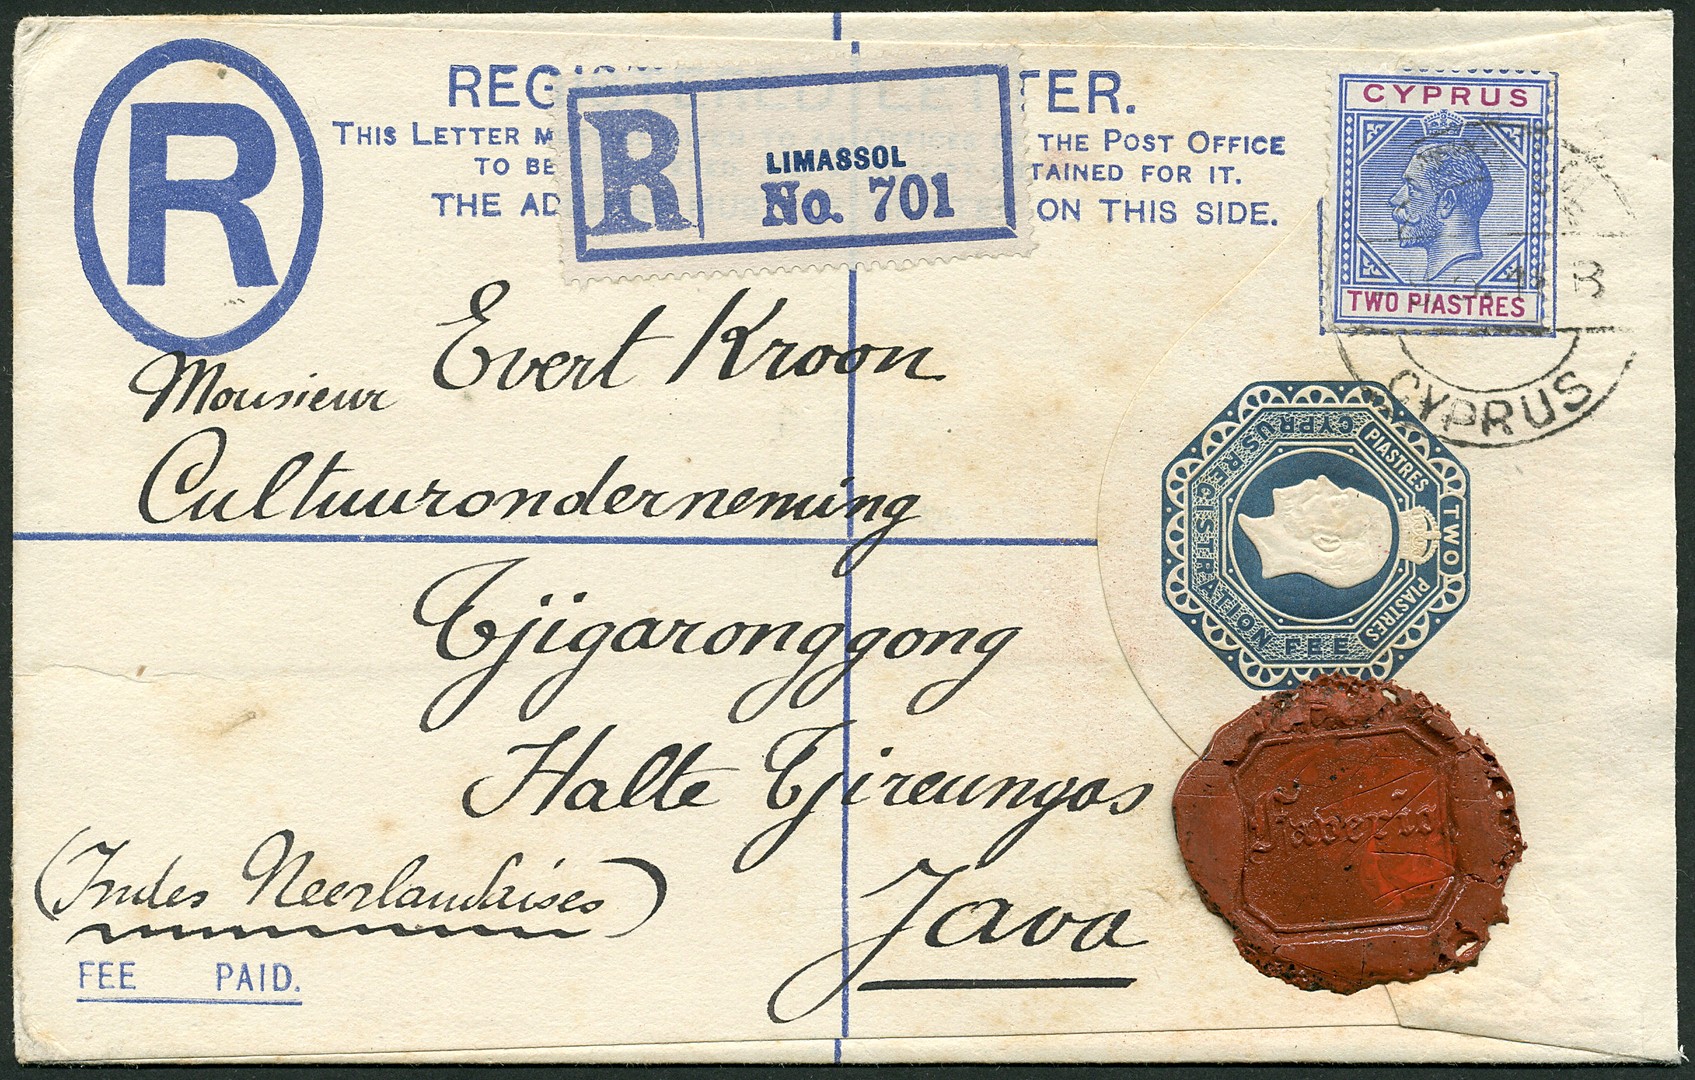 R
REG TER.
THIS LETTER M THE POST OFFICE
TO BE TAINED FOR IT.
THE AD ON THIS SIDE.
R
LIMASSOL
No. 701
CYPRUS
TWO PIASTRES
B
CYPRUS
CYPRUS REGISTRATION FEE
PIASTRES TWO PIASTRES
Monsieur Evert Kroon
Cultuuronderneming
Tjigaronggong
Halte Tjireungas
Java
(Indes Neerlandaises)
FEE PAID.